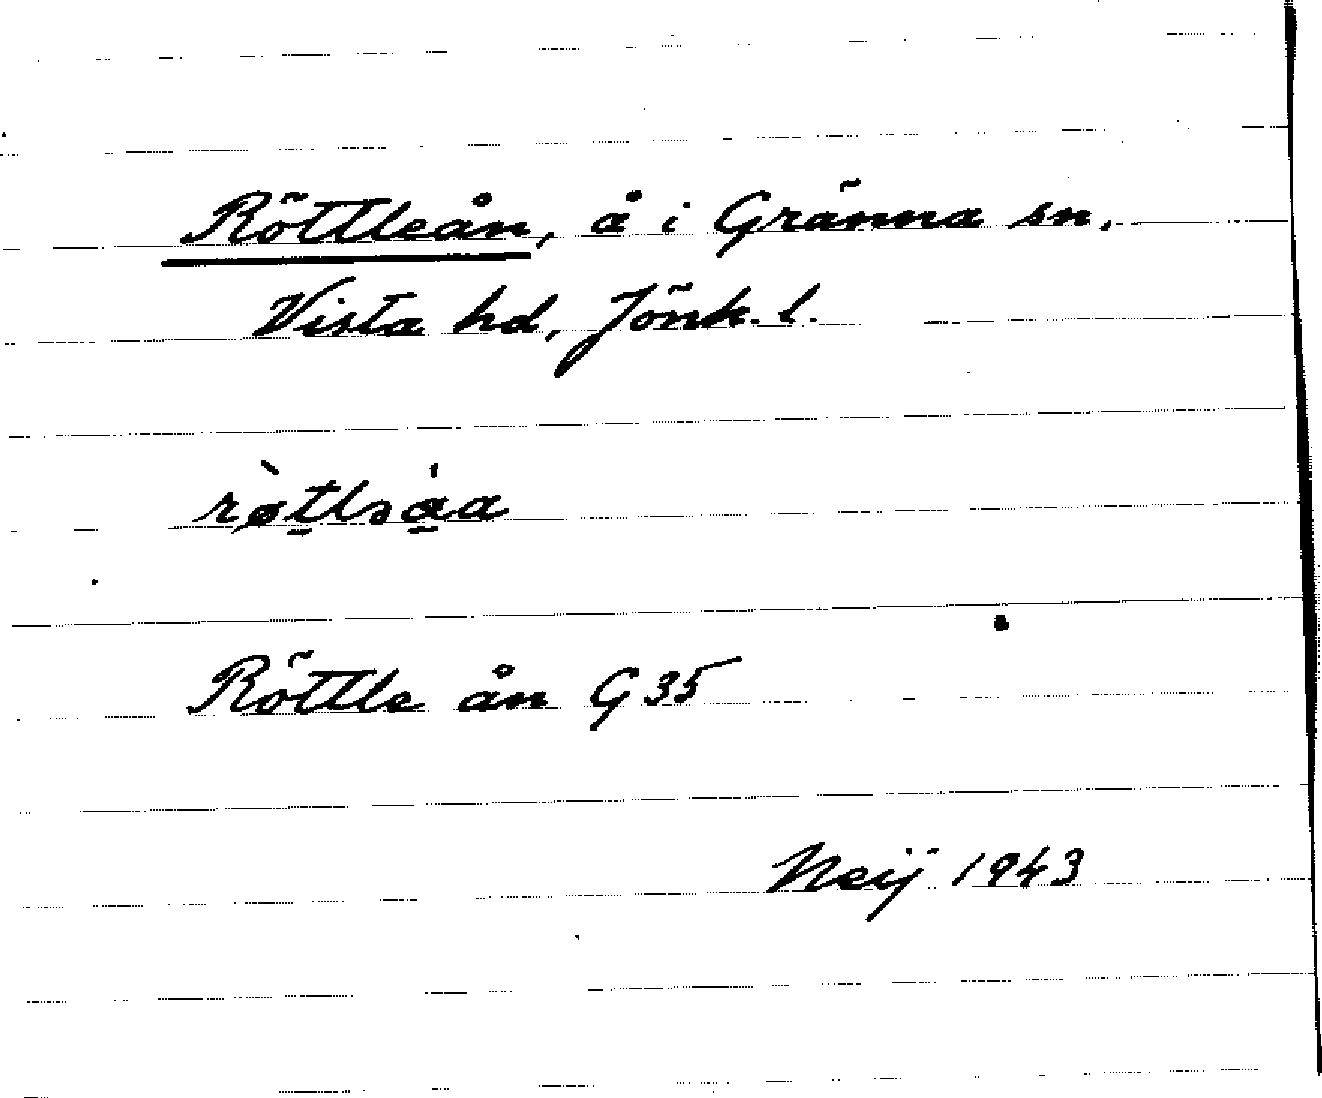 Röttleån, å i Gränna sn.
Vista hd, Jönk. l.
Röttle ån G 35
Neij 1943